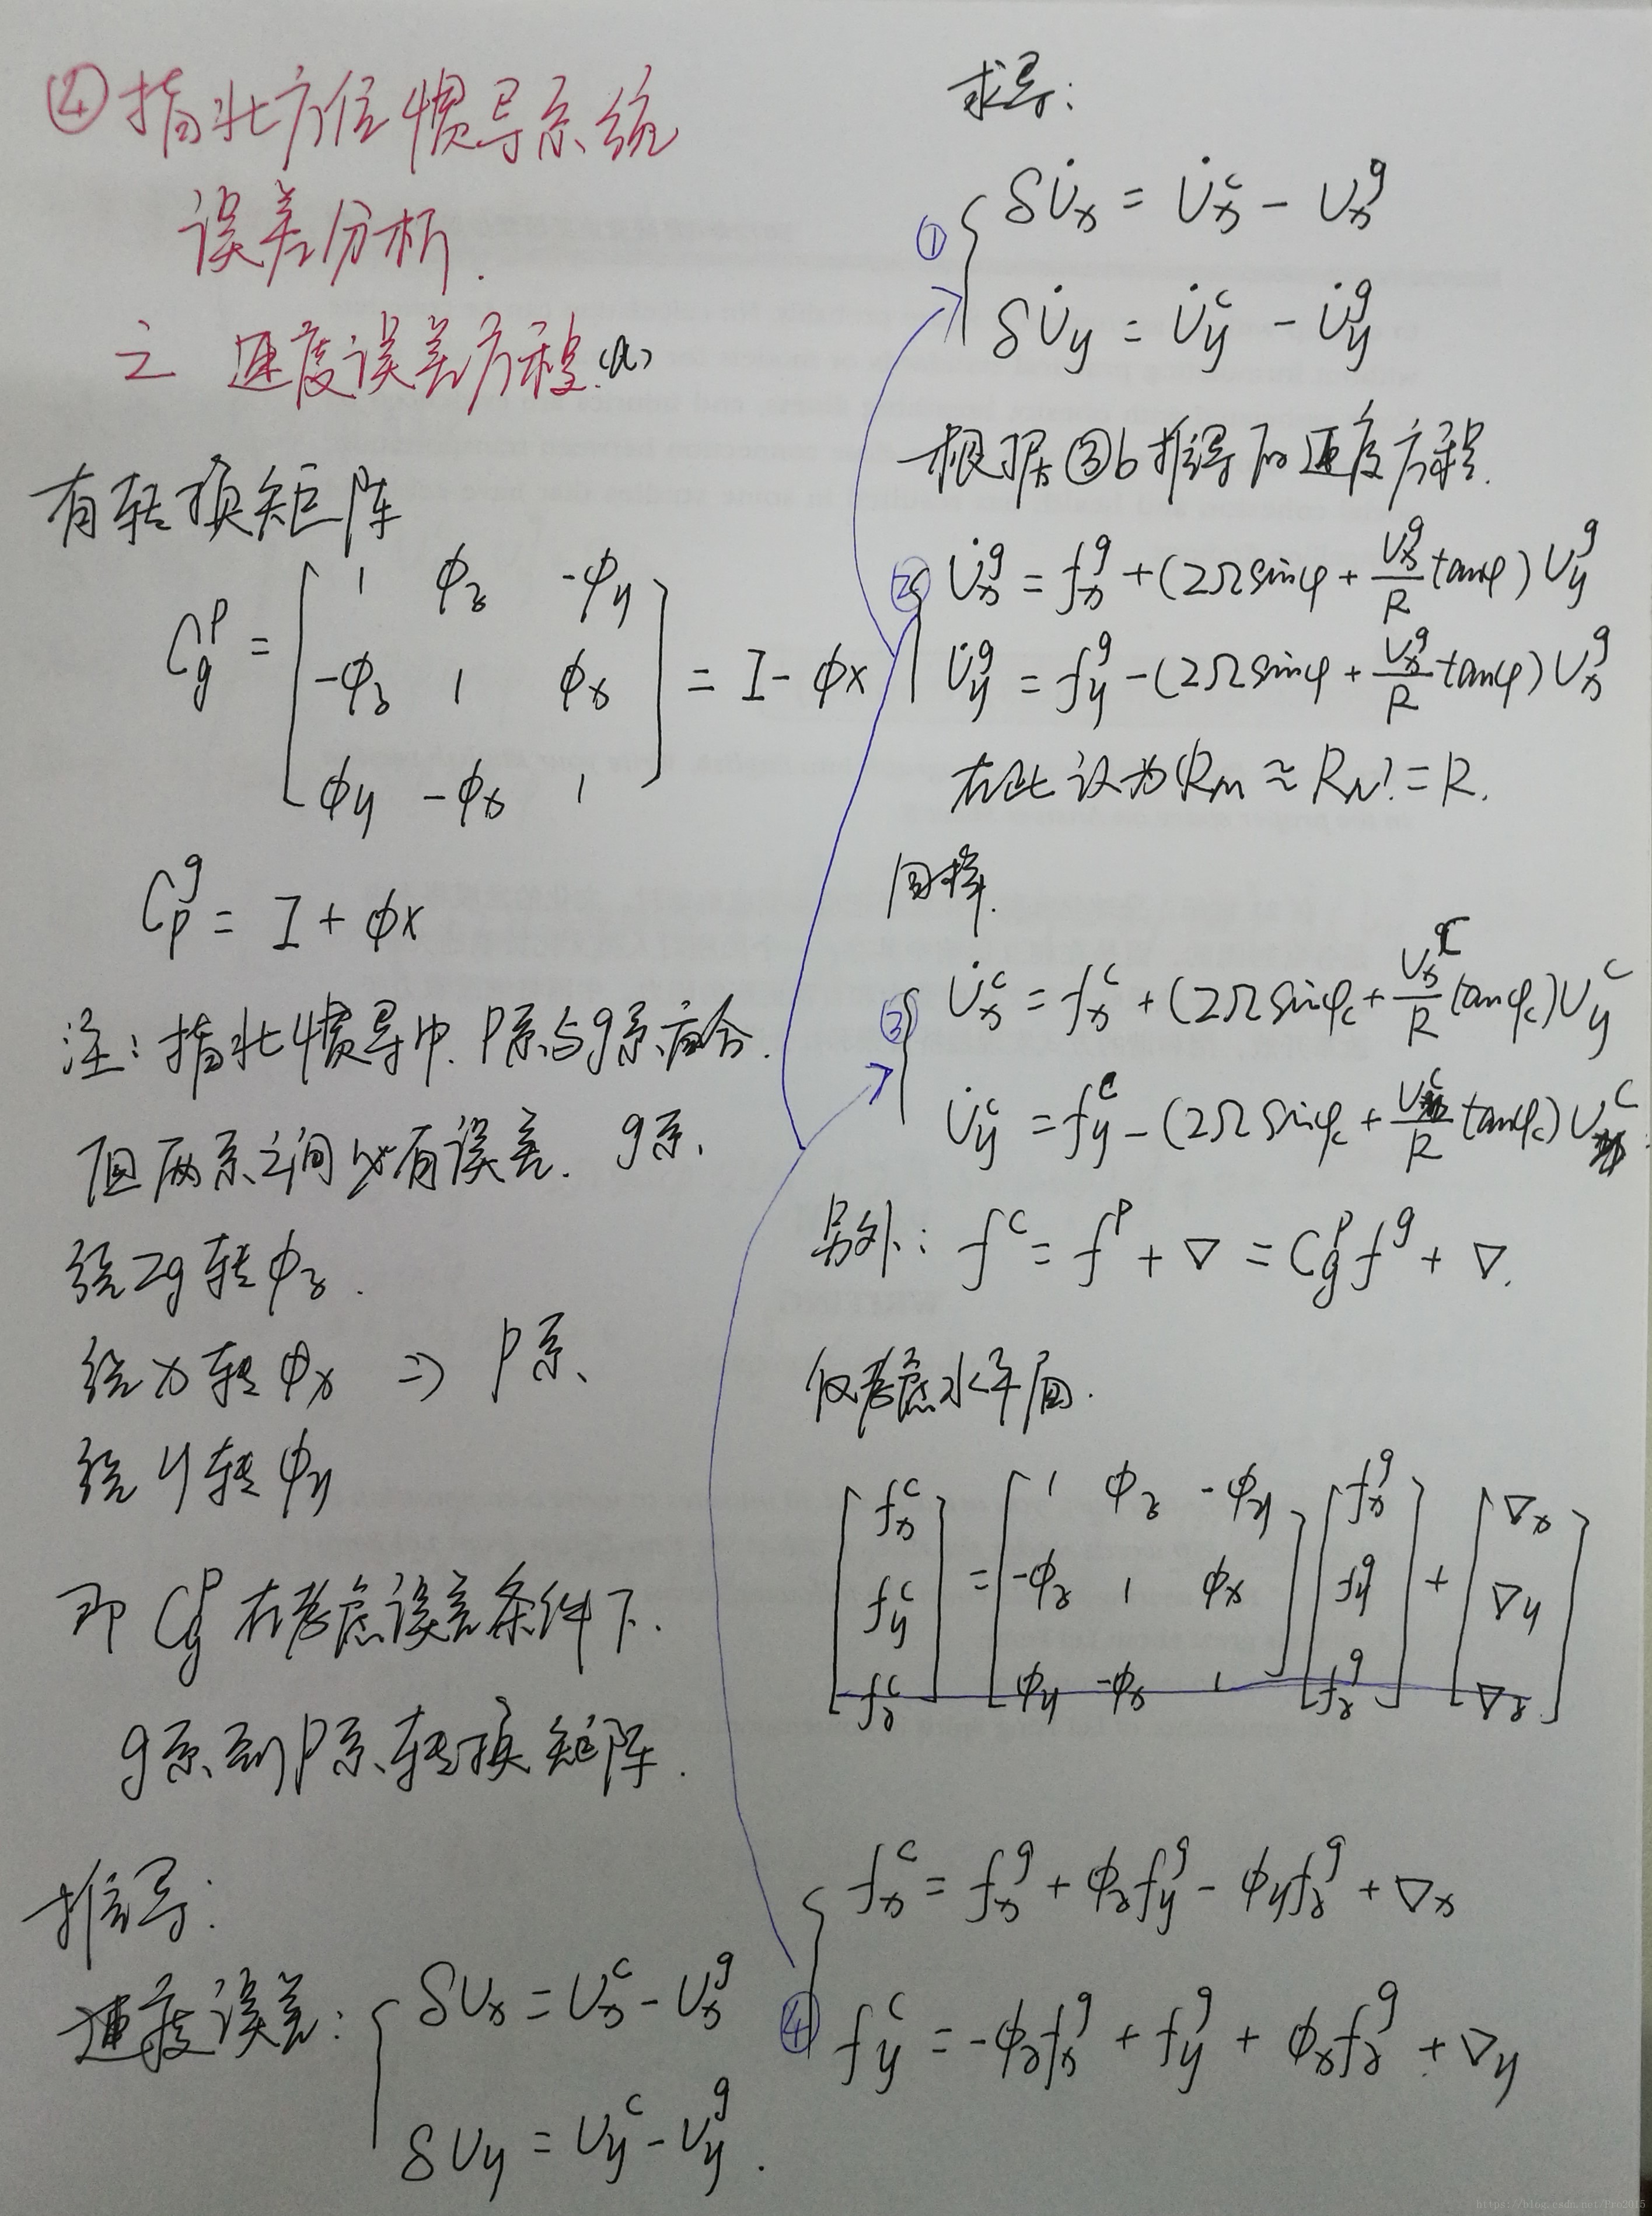 ④指北方位惯导系统
误差分析.
之 速度误差方程(a)
有转换矩阵
C_g^p = [1 φ_z -φ_y; -φ_z 1 φ_x; φ_y -φ_x 1] = I - φ×
C_p^g = I + φ×
注: 指北惯导中. p系与g系应合.
但两系之间必有误差. g系.
绕zg转φ_z.
绕x转φ_x ⇒ p系.
绕y转φ_y
即 C_g^p 在考虑误差条件下.
g系到p系转换矩阵.
推导:
速度误差: { δU_x = U_x^c - U_x^g
δU_y = U_y^c - U_y^g.
求导:
① { δU̇_x = U̇_x^c - U_x^g
δU̇_y = U̇_y^c - U̇_y^g
根据③b推得的速度方程.
② { U̇_x^g = f_x^g + (2Ωsinφ + U_x^g/R tanφ) U_y^g
U̇_y^g = f_y^g - (2Ωsinφ + U_x^g/R tanφ) U_x^g
在此认为(R_M ≈ R_N) = R.
同样.
③ { U̇_x^c = f_x^c + (2Ωsinφ_c + U_x^c/R tanφ_c) U_y^c
U̇_y^c = f_y^c - (2Ωsinφ_c + U^c/R tanφ_c) U^c
另外: f^c = f^p + ∇ = C_g^p f^g + ∇.
仅考虑水平面.
[f_x^c; f_y^c; f_z^c] = [1 φ_z -φ_y; -φ_z 1 φ_x; φ_y -φ_x 1] [f_x^g; f_y^g; f_z^g] + [∇_x; ∇_y; ∇_z]
④ { f_x^c = f_x^g + φ_z f_y^g - φ_y f_z^g + ∇_x
f_y^c = -φ_z f_x^g + f_y^g + φ_x f_z^g + ∇_y